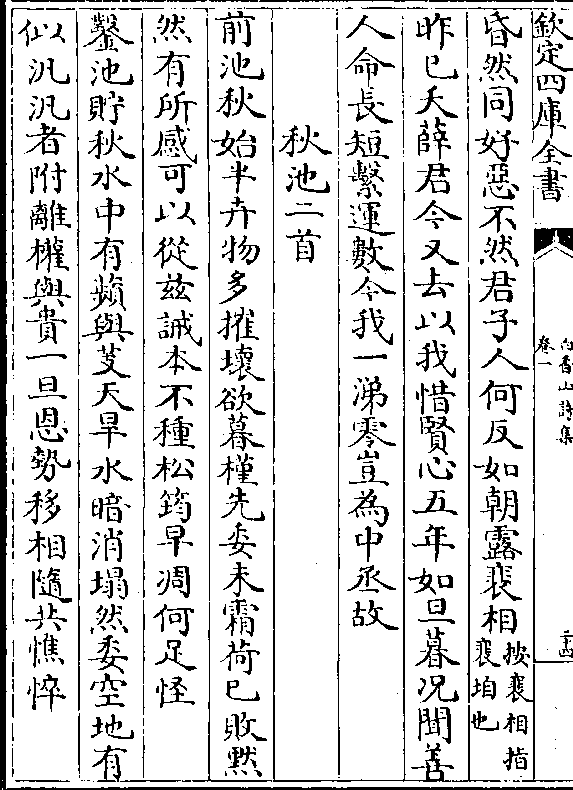 欽定四庫全書
白香山詩集
卷一
二十四
昏然同好惡不然君子人何反如朝露裴相按裴相指裴垍也
昨已夭薛君今又去以我惜賢心五年如旦暮况聞善
人命長短繫運數今我一涕零豈為中丞故
秋池二首
前池秋始半卉物多摧壞欲暮槿先委未霜荷已敗黙
然有所感可以從兹誡本不種松筠早凋何足怪
鑿池貯秋水中有蘋與芰天旱水暗消塌然委空地有
似汎汎者附離權與貴一旦恩勢移相隨共憔悴